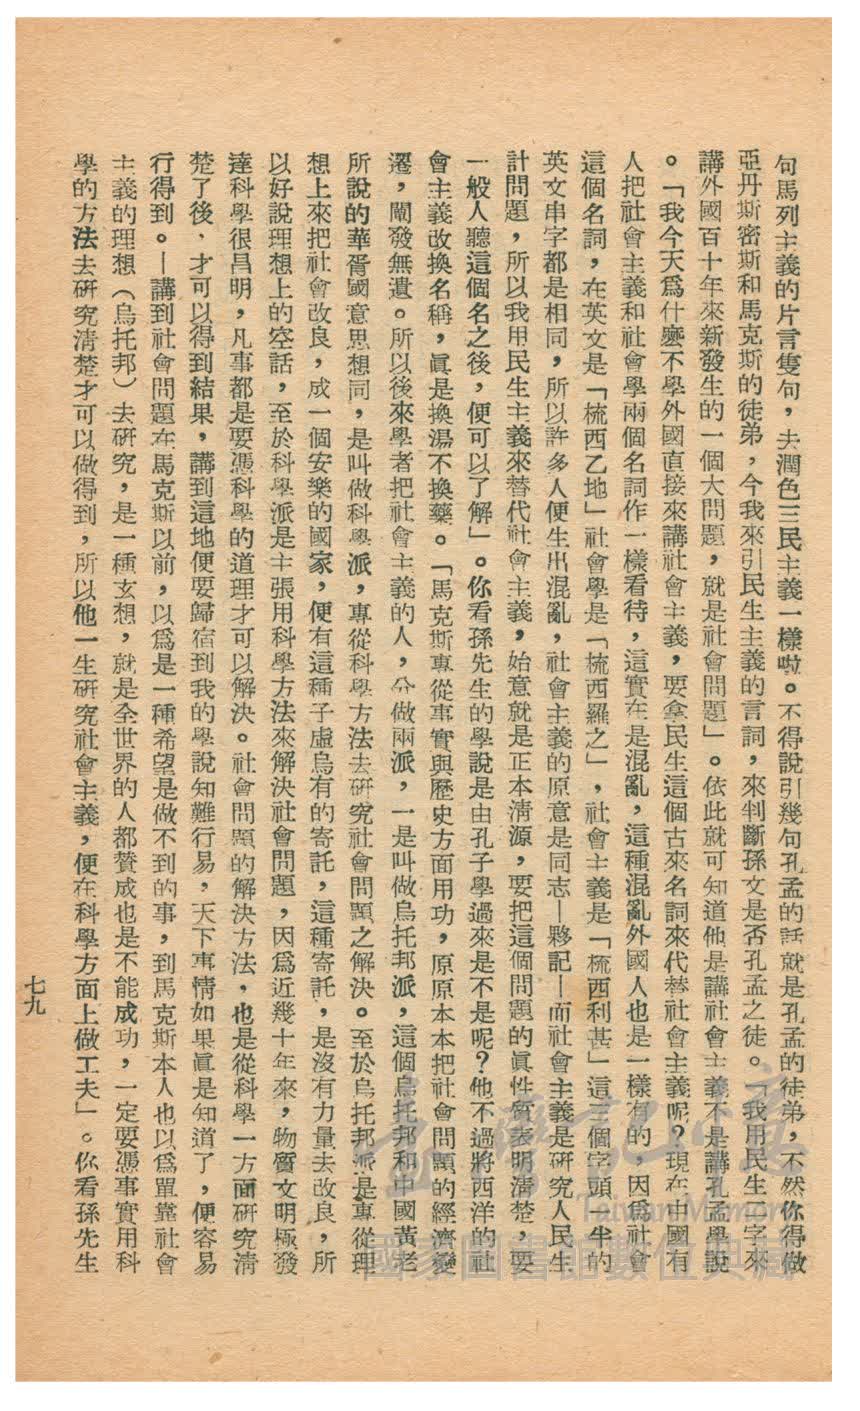 句馬列主義的片言隻句，去潤色三民主義一樣啦。不得說引幾句孔孟的話就是孔孟的徒弟，不然你得做
亞丹斯密斯和馬克斯的徒弟，今我來引民生主義的言詞，來判斷孫文是否孔孟之徒。「我用民生二字來
講外國百十年來新發生的一個大問題，就是社會問題」。依此就可知道他是講社會主義不是講孔孟學說
。「我今天爲什麼不學外國直接來講社會主義，要拿民生這個古來名詞來代替社會主義呢？現在中國有
人把社會主義和社會學兩個名詞作一樣看待，這實在是混亂，這種混亂外國人也是一樣有的，因爲社會
這個名詞，在英文是「梳西乙地」社會學是「梳西羅之」，社會主義是「梳西利甚」這三個字頭一半的
英文串字都是相同，所以許多人便生出混亂，社會主義的原意是同志—夥記—而社會主義是研究人民生
計問題，所以我用民生主義來替代社會主義，始意就是正本清源，要把這個問題的眞性質表明清楚，要
一般人聽這個名之後，便可以了解」。你看孫先生的學說是由孔子學過來是不是呢？他不過將西洋的社
會主義改換名稱，眞是換湯不換藥。「馬克斯專從事實與歷史方面用功，原原本本把社會問題的經濟變
遷，闡發無遺。所以後來學者把社會主義的人，分做兩派，一是叫做烏托邦派，這個烏托邦和中國黃老
所說的華胥國意思想同，是叫做科學派，專從科學方法去研究社會問題之解決。至於烏托邦派是專從理
想上來把社會改良，成一個安樂的國家，便有這種子虛烏有的寄託，這種寄託，是沒有力量去改良，所
以好說理想上的空話，至於科學派是主張用科學方法來解決社會問題，因爲近幾十年來，物質文明極發
達科學很昌明，凡事都是要憑科學的道理才可以解決。社會問題的解決方法，也是從科學一方面研究清
楚了後，才可以得到結果，講到這地便要歸宿到我的學說知難行易，天下事情如果眞是知道了，便容易
行得到。—講到社會問題在馬克斯以前，以爲是一種希望是做不到的事，到馬克斯本人也以爲單靠社會
主義的理想（烏托邦）去研究，是一種玄想，就是全世界的人都贊成也是不能成功，一定要憑事實用科
學的方法去研究清楚才可以做得到，所以他一生研究社會主義，便在科學方面上做工夫」。你看孫先生
七九
臺灣記憶
Taiwan Memory
國家圖書館數位典藏